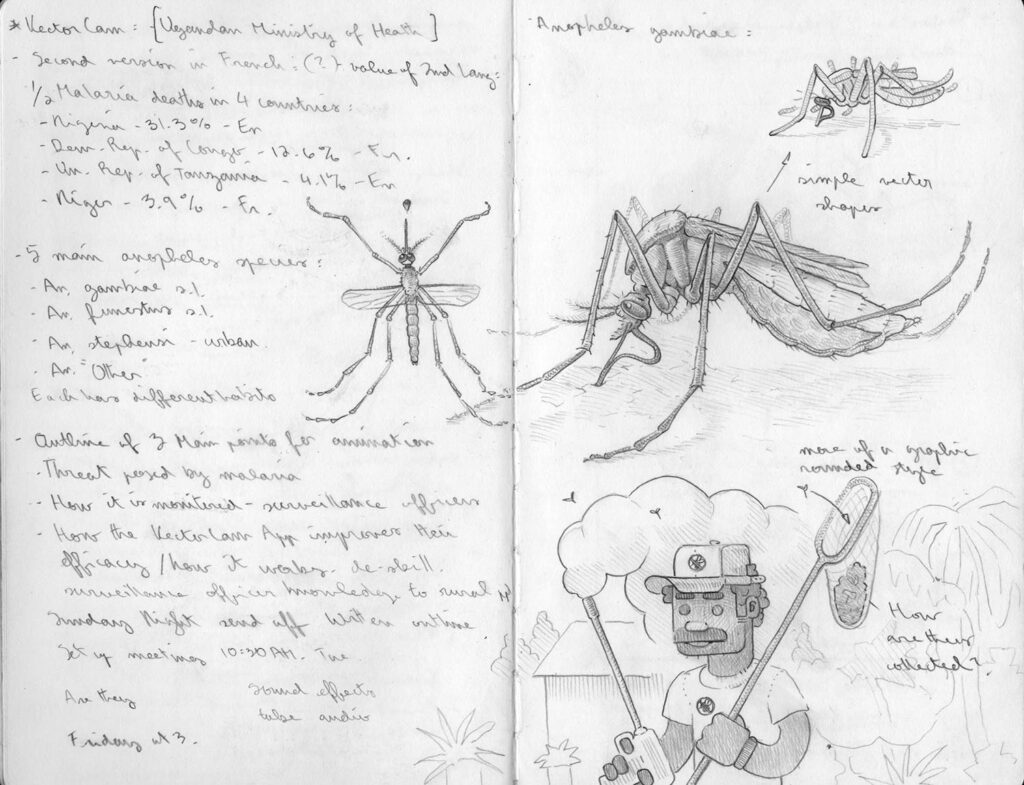 * VectorCam: [Ugandan Ministry of Health]
- Second version in French: (?) - value of 2nd Lang:
1/2 Malaria deaths in 4 countries:
- Nigeria - 31.3% - En
- Dem. Rep. of Congo - 12.6% - Fr.
- Un. Rep. of Tanzania - 4.1% - En
- Niger - 3.9% - Fr.
- 5 main anopheles species:
- An. gambiae s.l.
- An. funestus s.l.
- An stephensi - urban.
- An. "Other"
Each has different habits
- Outline of 3 Main points for animation
- Threat posed by malaria
- How it is monitored - surveillance officers
- How the VectorCam App improves their
efficacy / how it works. de-skill.
surveillance officer knowledge to rural
Sunday Night send off written outline
Set up meetings 10:30AM. Tue
Are they
Sound effects
take audio
Friday at 3.
Anopheles gambiae:
simple vector
shapes
more of a graphic
rounded style
How
are they
collected?